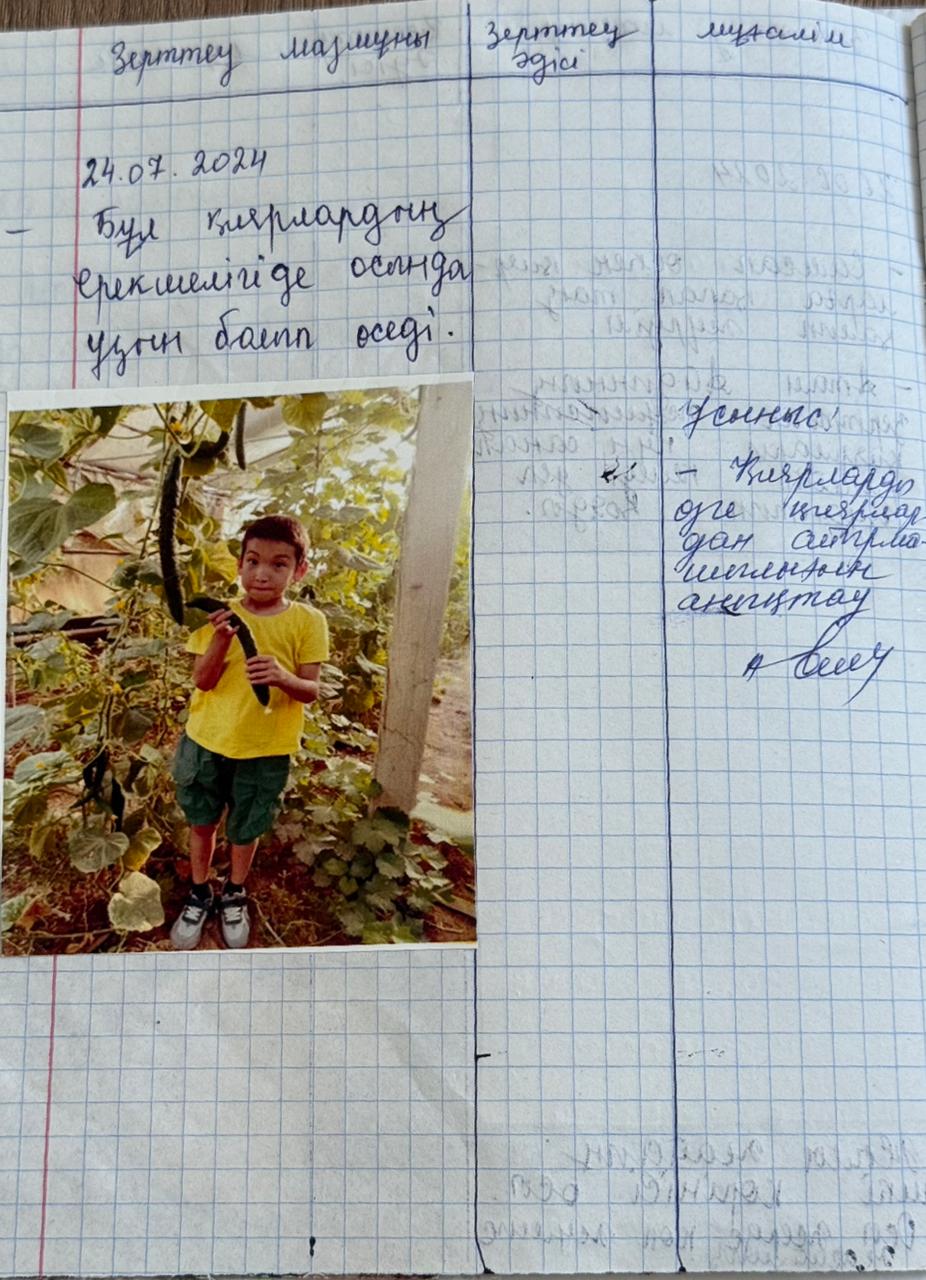 Зерттеу мазмұны
Зерттеу
әдісі
мұғалім
24.07.2024
- Бұл қиярлардың
ерекшелігіде осында
ұзын болып өседі.
Ұсыныс:
- Қиярларды
өзге қиярлар
дан айырма-
шылығын
анықтау